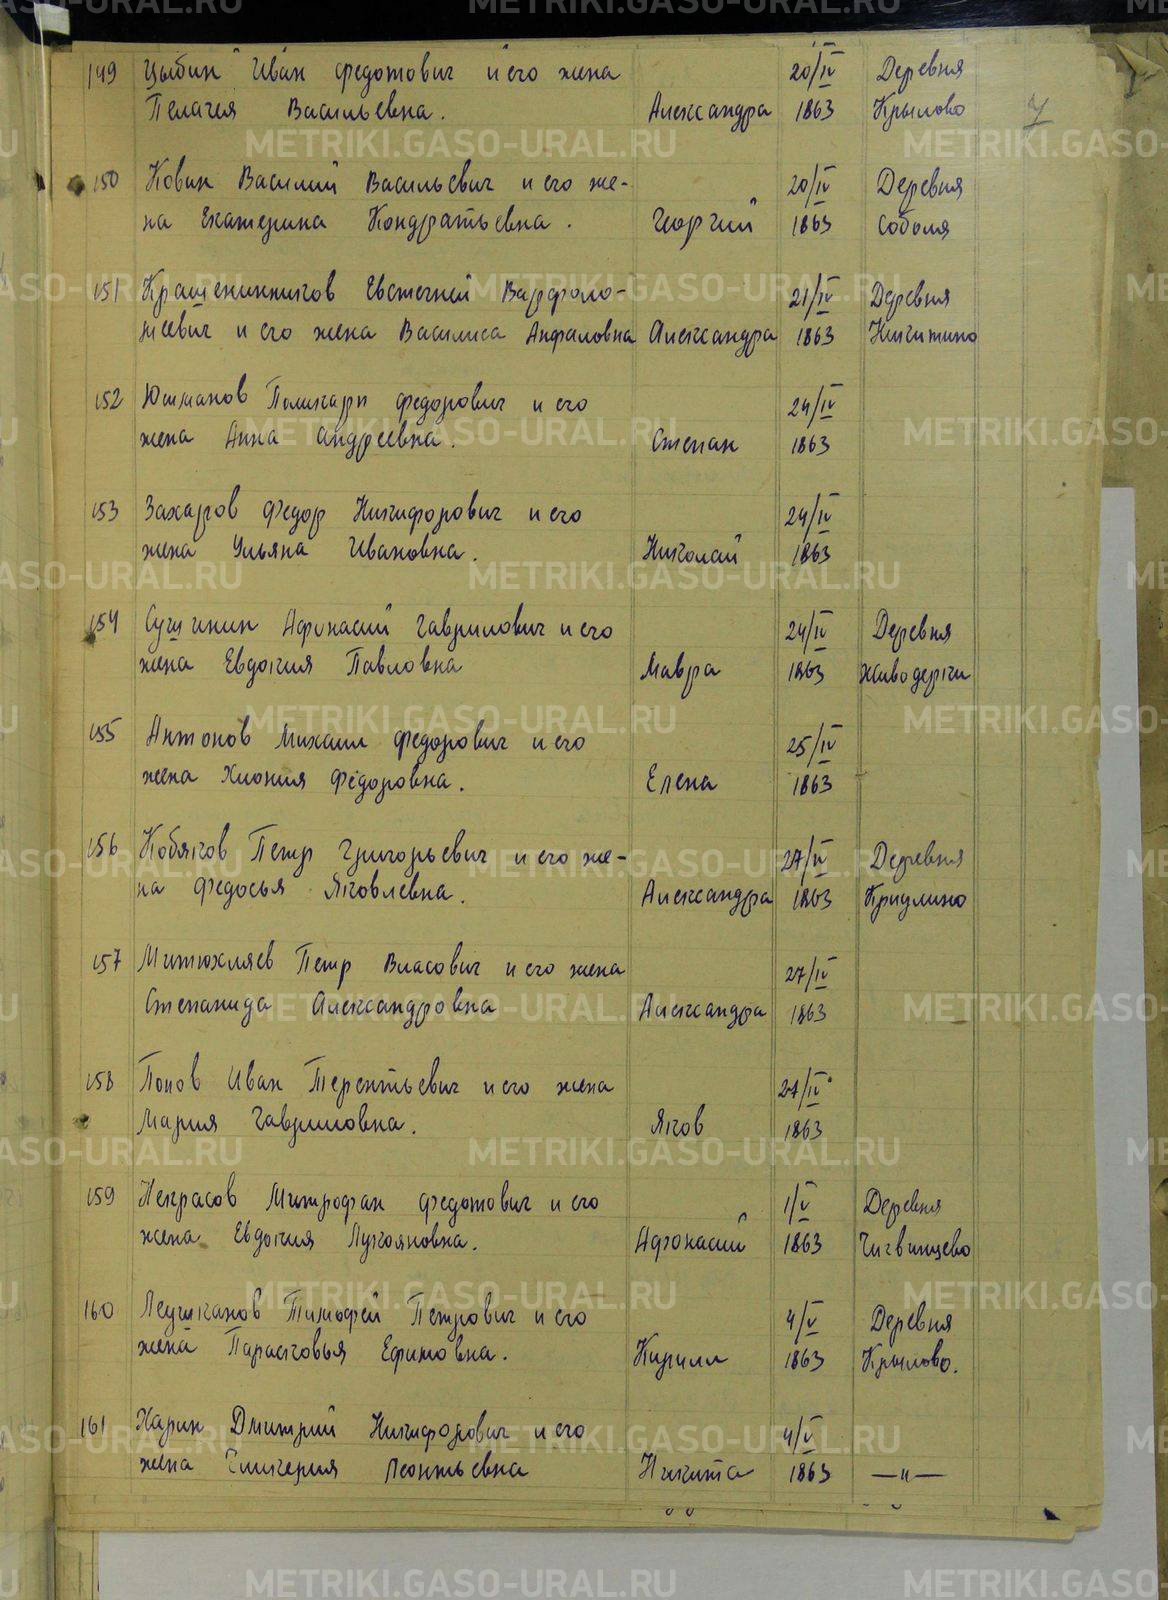 149 Цыбин Иван Федотович и его жена 20/IV Деревня
Пелагея Васильевна. Александра 1863 Крылово 7
150 Ковин Василий Васильевич и его же- 20/IV Деревня
на Екатерина Кондратьевна. Георгий 1863 Соболя
151 Крашенинников Евстегней Варфоло- 21/IV Деревня
меевич и его жена Василиса Анфаловна Александра 1863 Никитино
152 Юшманов Поликарп Федорович и его 24/IV
жена Анна Андреевна. Степан 1863
153 Захаров Федор Никифорович и его 24/IV
жена Ульяна Ивановна. Николай 1863
154 Афонасий Гаврилович и его 24/IV Деревня
жена Евдокия Павловна Мавра 1863 Живодерки
155 Антонов Михаил Федорович и его 25/IV
жена Хиония Федоровна. Елена 1863
156 Кобяков Петр Григорьевич и его же- 27/IV Деревня
на Федосья Яковлевна. Александра 1863 Криулино
157 Митюхляев Петр Власович и его жена 27/IV
Степанида Александровна Александра 1863
158 Попов Иван Терентьевич и его жена 27/IV
Мария Гавриловна. Яков 1863
159 Некрасов Митрофан Федотович и его 1/V Деревня
жена Евдокия Лукояновна. Афонасий 1863 Чигвинцево
160 Тимофей Петрович и его 4/V Деревня
жена Парасковья Ефимовна. Кирилл 1863 Крылово.
161 Харин Дмитрий Никифорович и его 4/V
жена Гликерия Леонтьевна Никита 1863 —"—
METRIKI.GASO-URAL.RU